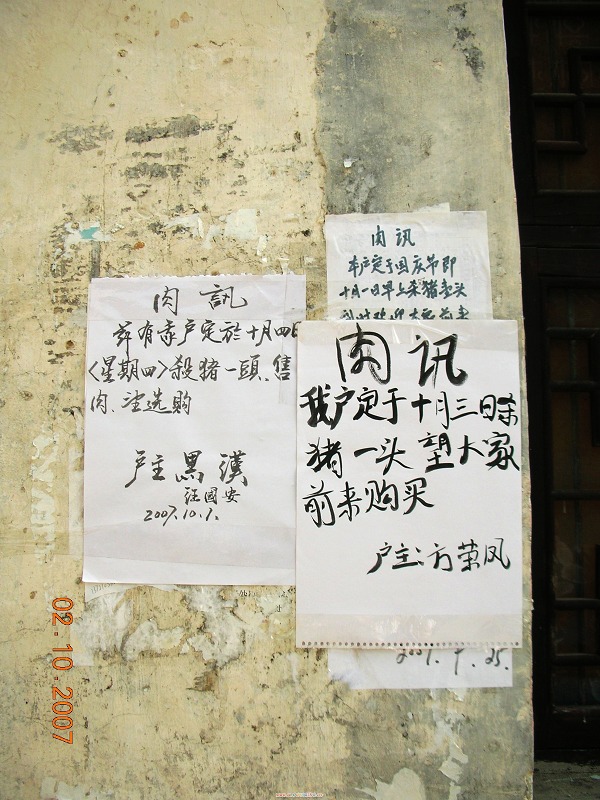 肉訊
兹有家户定於十月四日
〈星期四〉殺猪一頭.售
肉、望选购
户主黑漢
汪國安
2007.10.1.
肉訊
本户定于国庆节即
十月一日早上杀猪壹头
肉訊
我户定于十月三日杀
猪一头望大家
前来购买
户主:方荣凤
2007.9.25.
02-10-2007